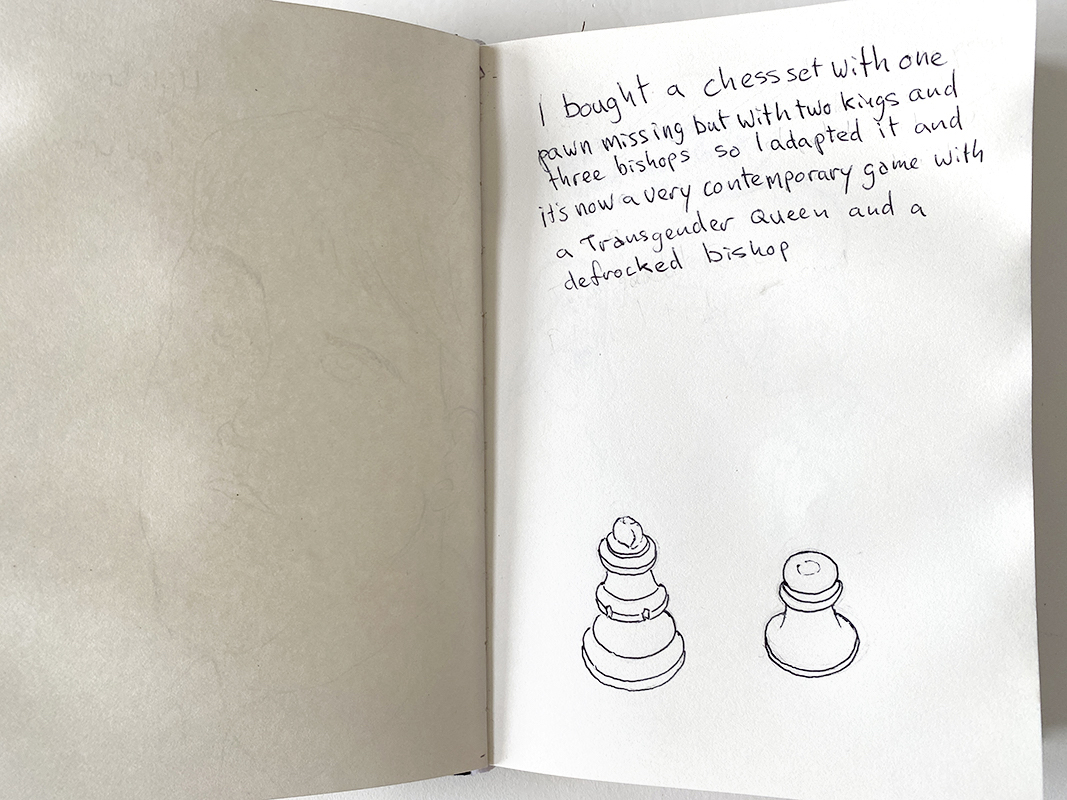 I bought a chess set with one
pawn missing but with two kings and
three bishops so I adapted it and
it's now a very contemporary game with
a Transgender Queen and a
defrocked bishop